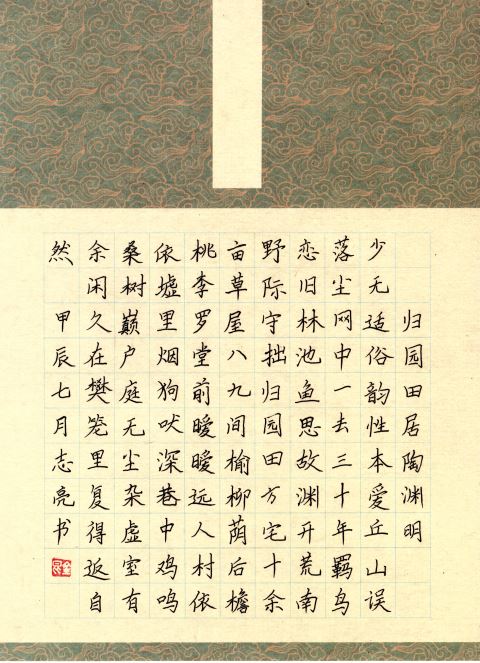 归园田居陶渊明
少无适俗韵性本爱丘山误
落尘网中一去三十年羁鸟
恋旧林池鱼思故渊开荒南
野际守拙归园田方宅十余
亩草屋八九间榆柳荫后檐
桃李罗堂前暧暧远人村依
依墟里烟狗吠深巷中鸡鸣
桑树巅户庭无尘杂虚室有
余闲久在樊笼里复得返自
然 甲辰七月志亮书